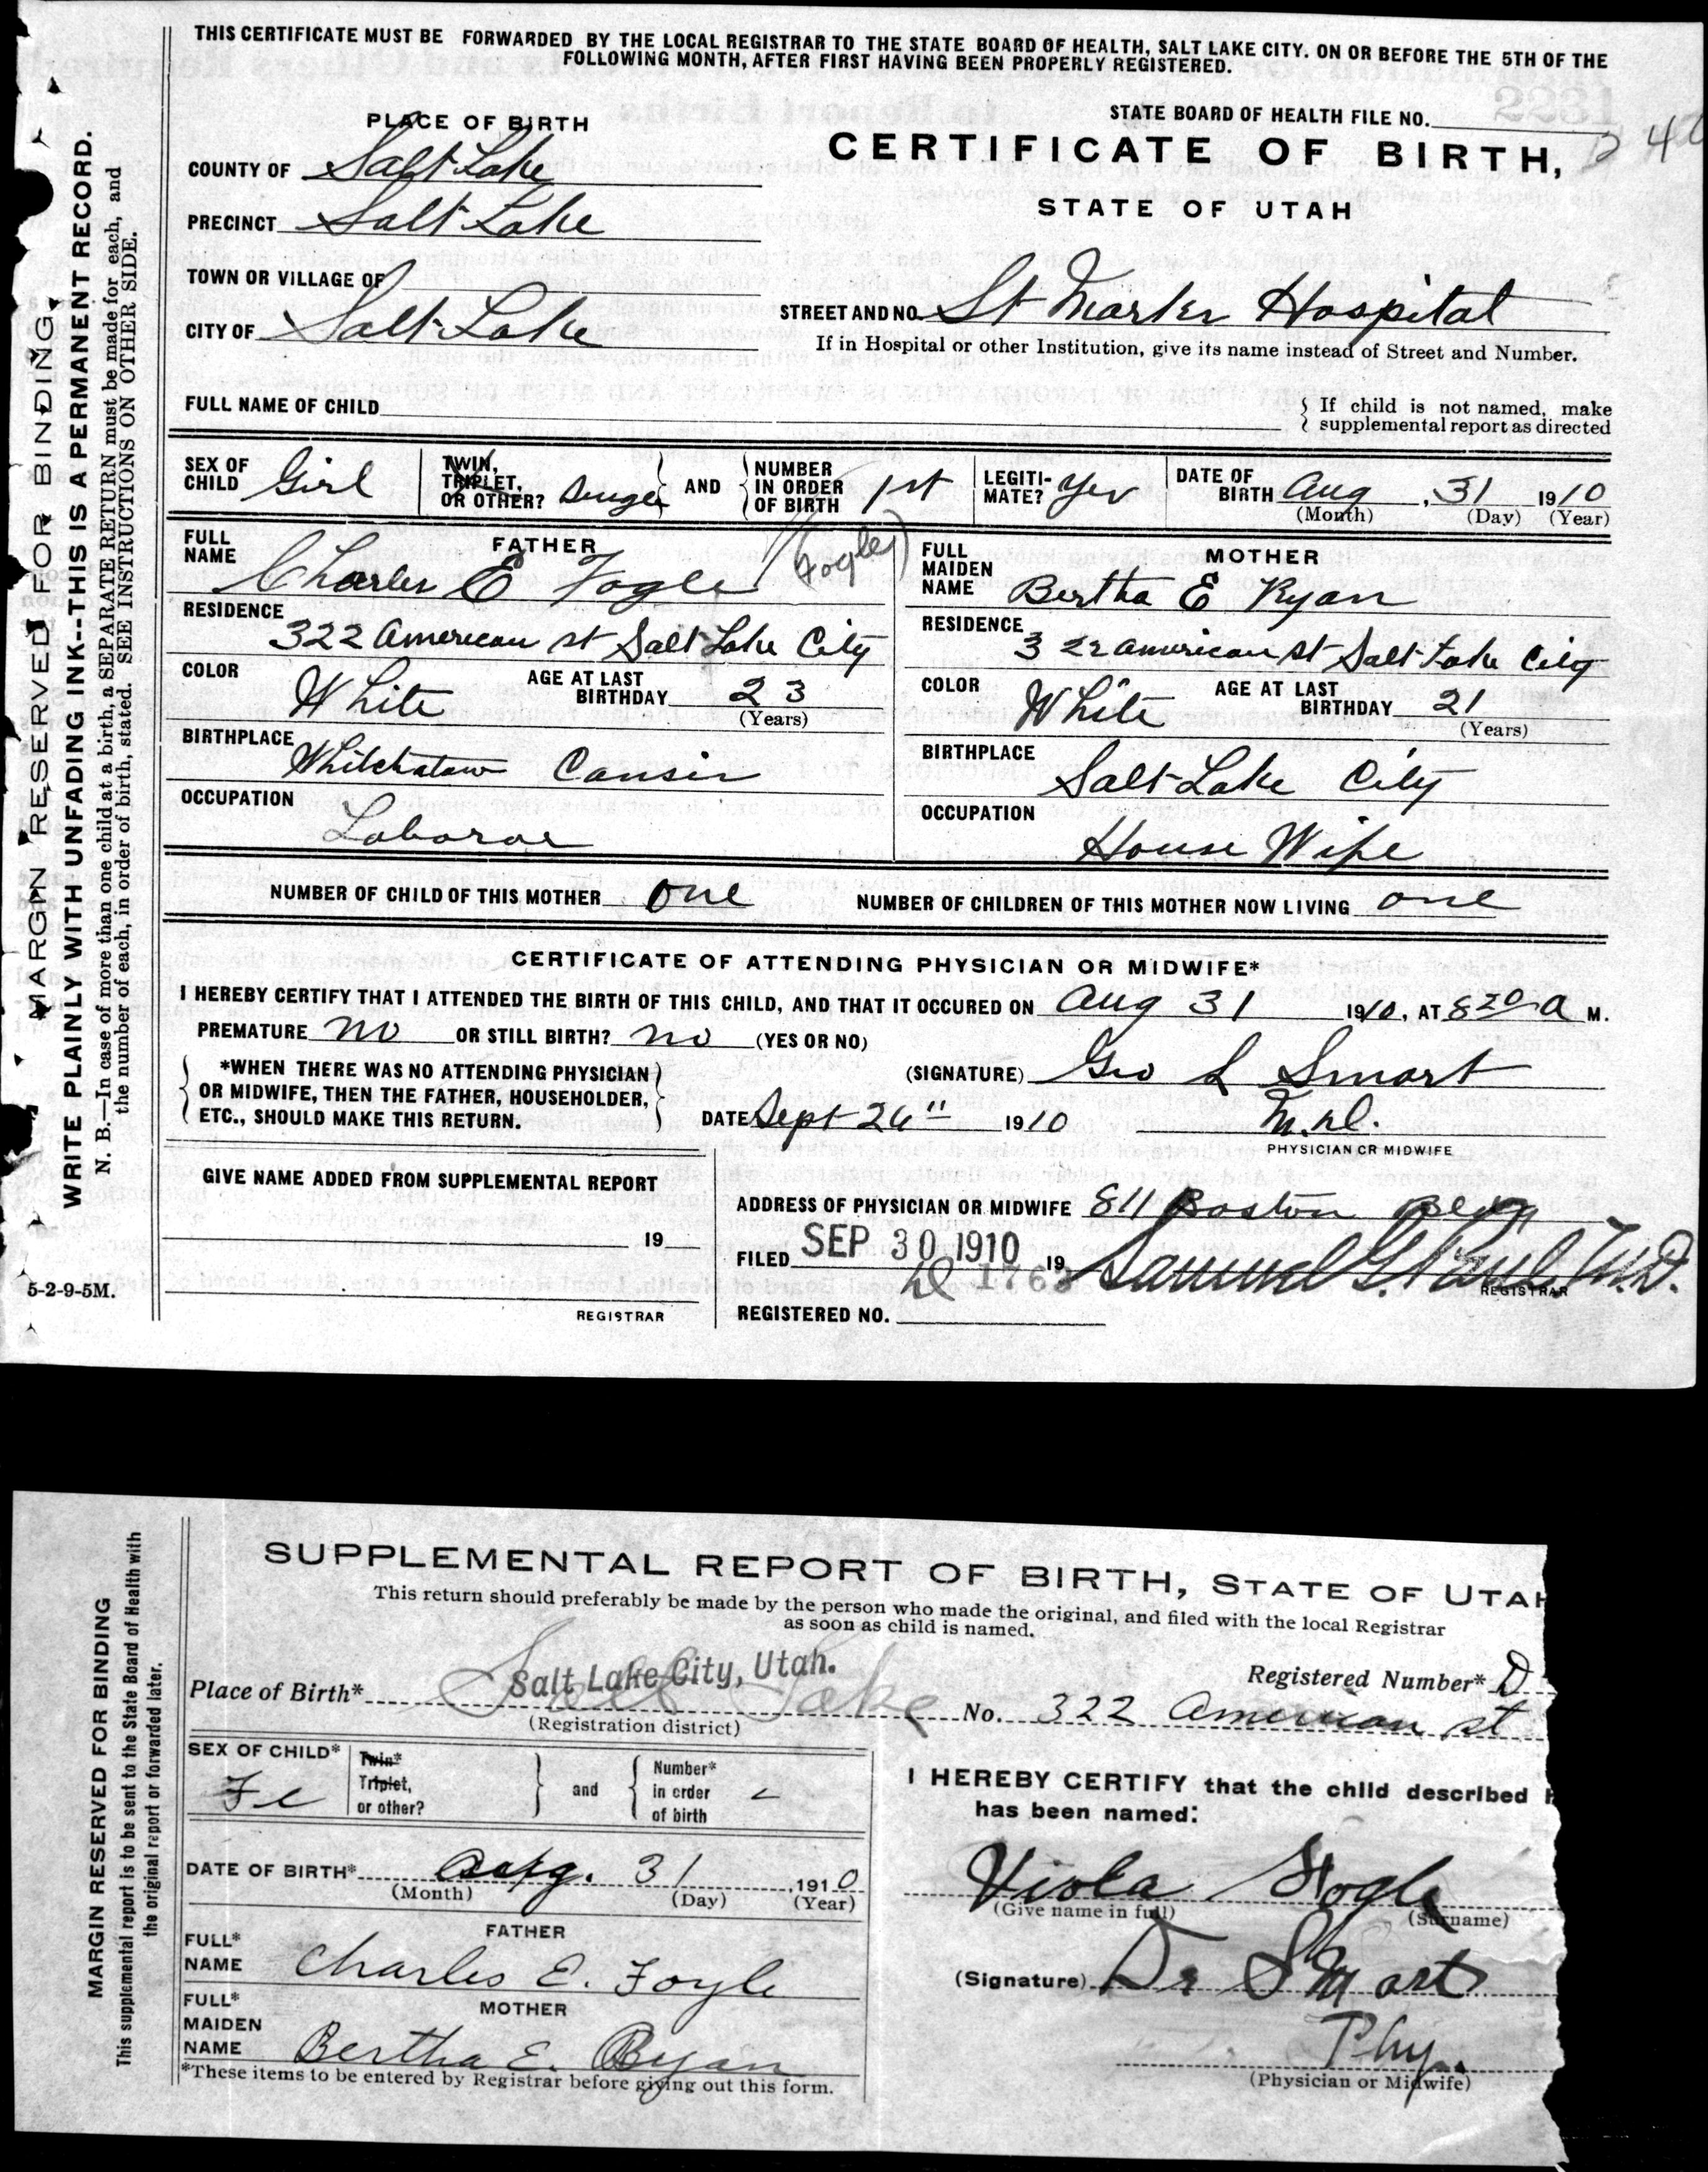 THIS CERTIFICATE MUST BE FORWARDED BY THE LOCAL REGISTRAR TO THE STATE BOARD OF HEALTH, SALT LAKE CITY. ON OR BEFORE THE 5TH OF THE
FOLLOWING MONTH, AFTER FIRST HAVING BEEN PROPERLY REGISTERED.
STATE BOARD OF HEALTH FILE NO.
PLACE OF BIRTH
CERTIFICATE OF BIRTH,
STATE OF UTAH
COUNTY OF Salt Lake
PRECINCT Salt Lake
TOWN OR VILLAGE OF
CITY OF Salt Lake
STREET AND NO. St Marks Hospital
If in Hospital or other Institution, give its name instead of Street and Number.
FULL NAME OF CHILD
If child is not named, make
supplemental report as directed
SEX OF CHILD Girl
TWIN, TRIPLET, OR OTHER? AND NUMBER IN ORDER OF BIRTH 1st
LEGITIMATE? Yes
DATE OF BIRTH Aug 31 1910
(Month) (Day) (Year)
FATHER
FULL NAME Charles E Fogle (Fogle)
RESIDENCE 322 American st Salt Lake City
COLOR White AGE AT LAST BIRTHDAY 23 (Years)
BIRTHPLACE
OCCUPATION Laboror
MOTHER
FULL MAIDEN NAME Bertha E Ryan
RESIDENCE 322 American st Salt Lake City
COLOR White AGE AT LAST BIRTHDAY 21 (Years)
BIRTHPLACE Salt Lake City
OCCUPATION House Wife
NUMBER OF CHILD OF THIS MOTHER one NUMBER OF CHILDREN OF THIS MOTHER NOW LIVING one
CERTIFICATE OF ATTENDING PHYSICIAN OR MIDWIFE*
I HEREBY CERTIFY THAT I ATTENDED THE BIRTH OF THIS CHILD, AND THAT IT OCCURED ON Aug 31 1910, AT 8 20 A M.
PREMATURE no OR STILL BIRTH? no (YES OR NO)
*WHEN THERE WAS NO ATTENDING PHYSICIAN
OR MIDWIFE, THEN THE FATHER, HOUSEHOLDER,
ETC., SHOULD MAKE THIS RETURN.
(SIGNATURE) Geo L Smart
DATE Sept 26" 1910 M.D.
PHYSICIAN OR MIDWIFE
GIVE NAME ADDED FROM SUPPLEMENTAL REPORT
19
REGISTRAR
ADDRESS OF PHYSICIAN OR MIDWIFE 811 Boston Bldg
FILED SEP 30 1910 19 Samuel G. Paul M.D.
REGISTRAR
1763
REGISTERED NO.
MARGIN RESERVED FOR BINDING.
WRITE PLAINLY WITH UNFADING INK--THIS IS A PERMANENT RECORD.
N. B.—In case of more than one child at a birth, a SEPARATE RETURN must be made for each, and
the number of each, in order of birth, stated. SEE INSTRUCTIONS ON OTHER SIDE.
5-2-9-5M.
SUPPLEMENTAL REPORT OF BIRTH, STATE OF UTAH
This return should preferably be made by the person who made the original, and filed with the local Registrar
as soon as child is named.
Registered Number* D
Place of Birth* Salt Lake City, Utah. Salt Lake No. 322 American st
(Registration district)
SEX OF CHILD* Fe
Twin* Triplet, or other? and Number* in order of birth
DATE OF BIRTH* Aug. 31 1910
(Month) (Day) (Year)
FATHER
FULL* NAME Charles E. Fogle
MOTHER
FULL* MAIDEN NAME Bertha E. Ryan
*These items to be entered by Registrar before giving out this form.
I HEREBY CERTIFY that the child described
has been named:
Viola Fogle
(Give name in full) (Surname)
(Signature) Dr Smart
Phy.
(Physician or Midwife)
MARGIN RESERVED FOR BINDING
This supplemental report is to be sent to the State Board of Health with
the original report or forwarded later.